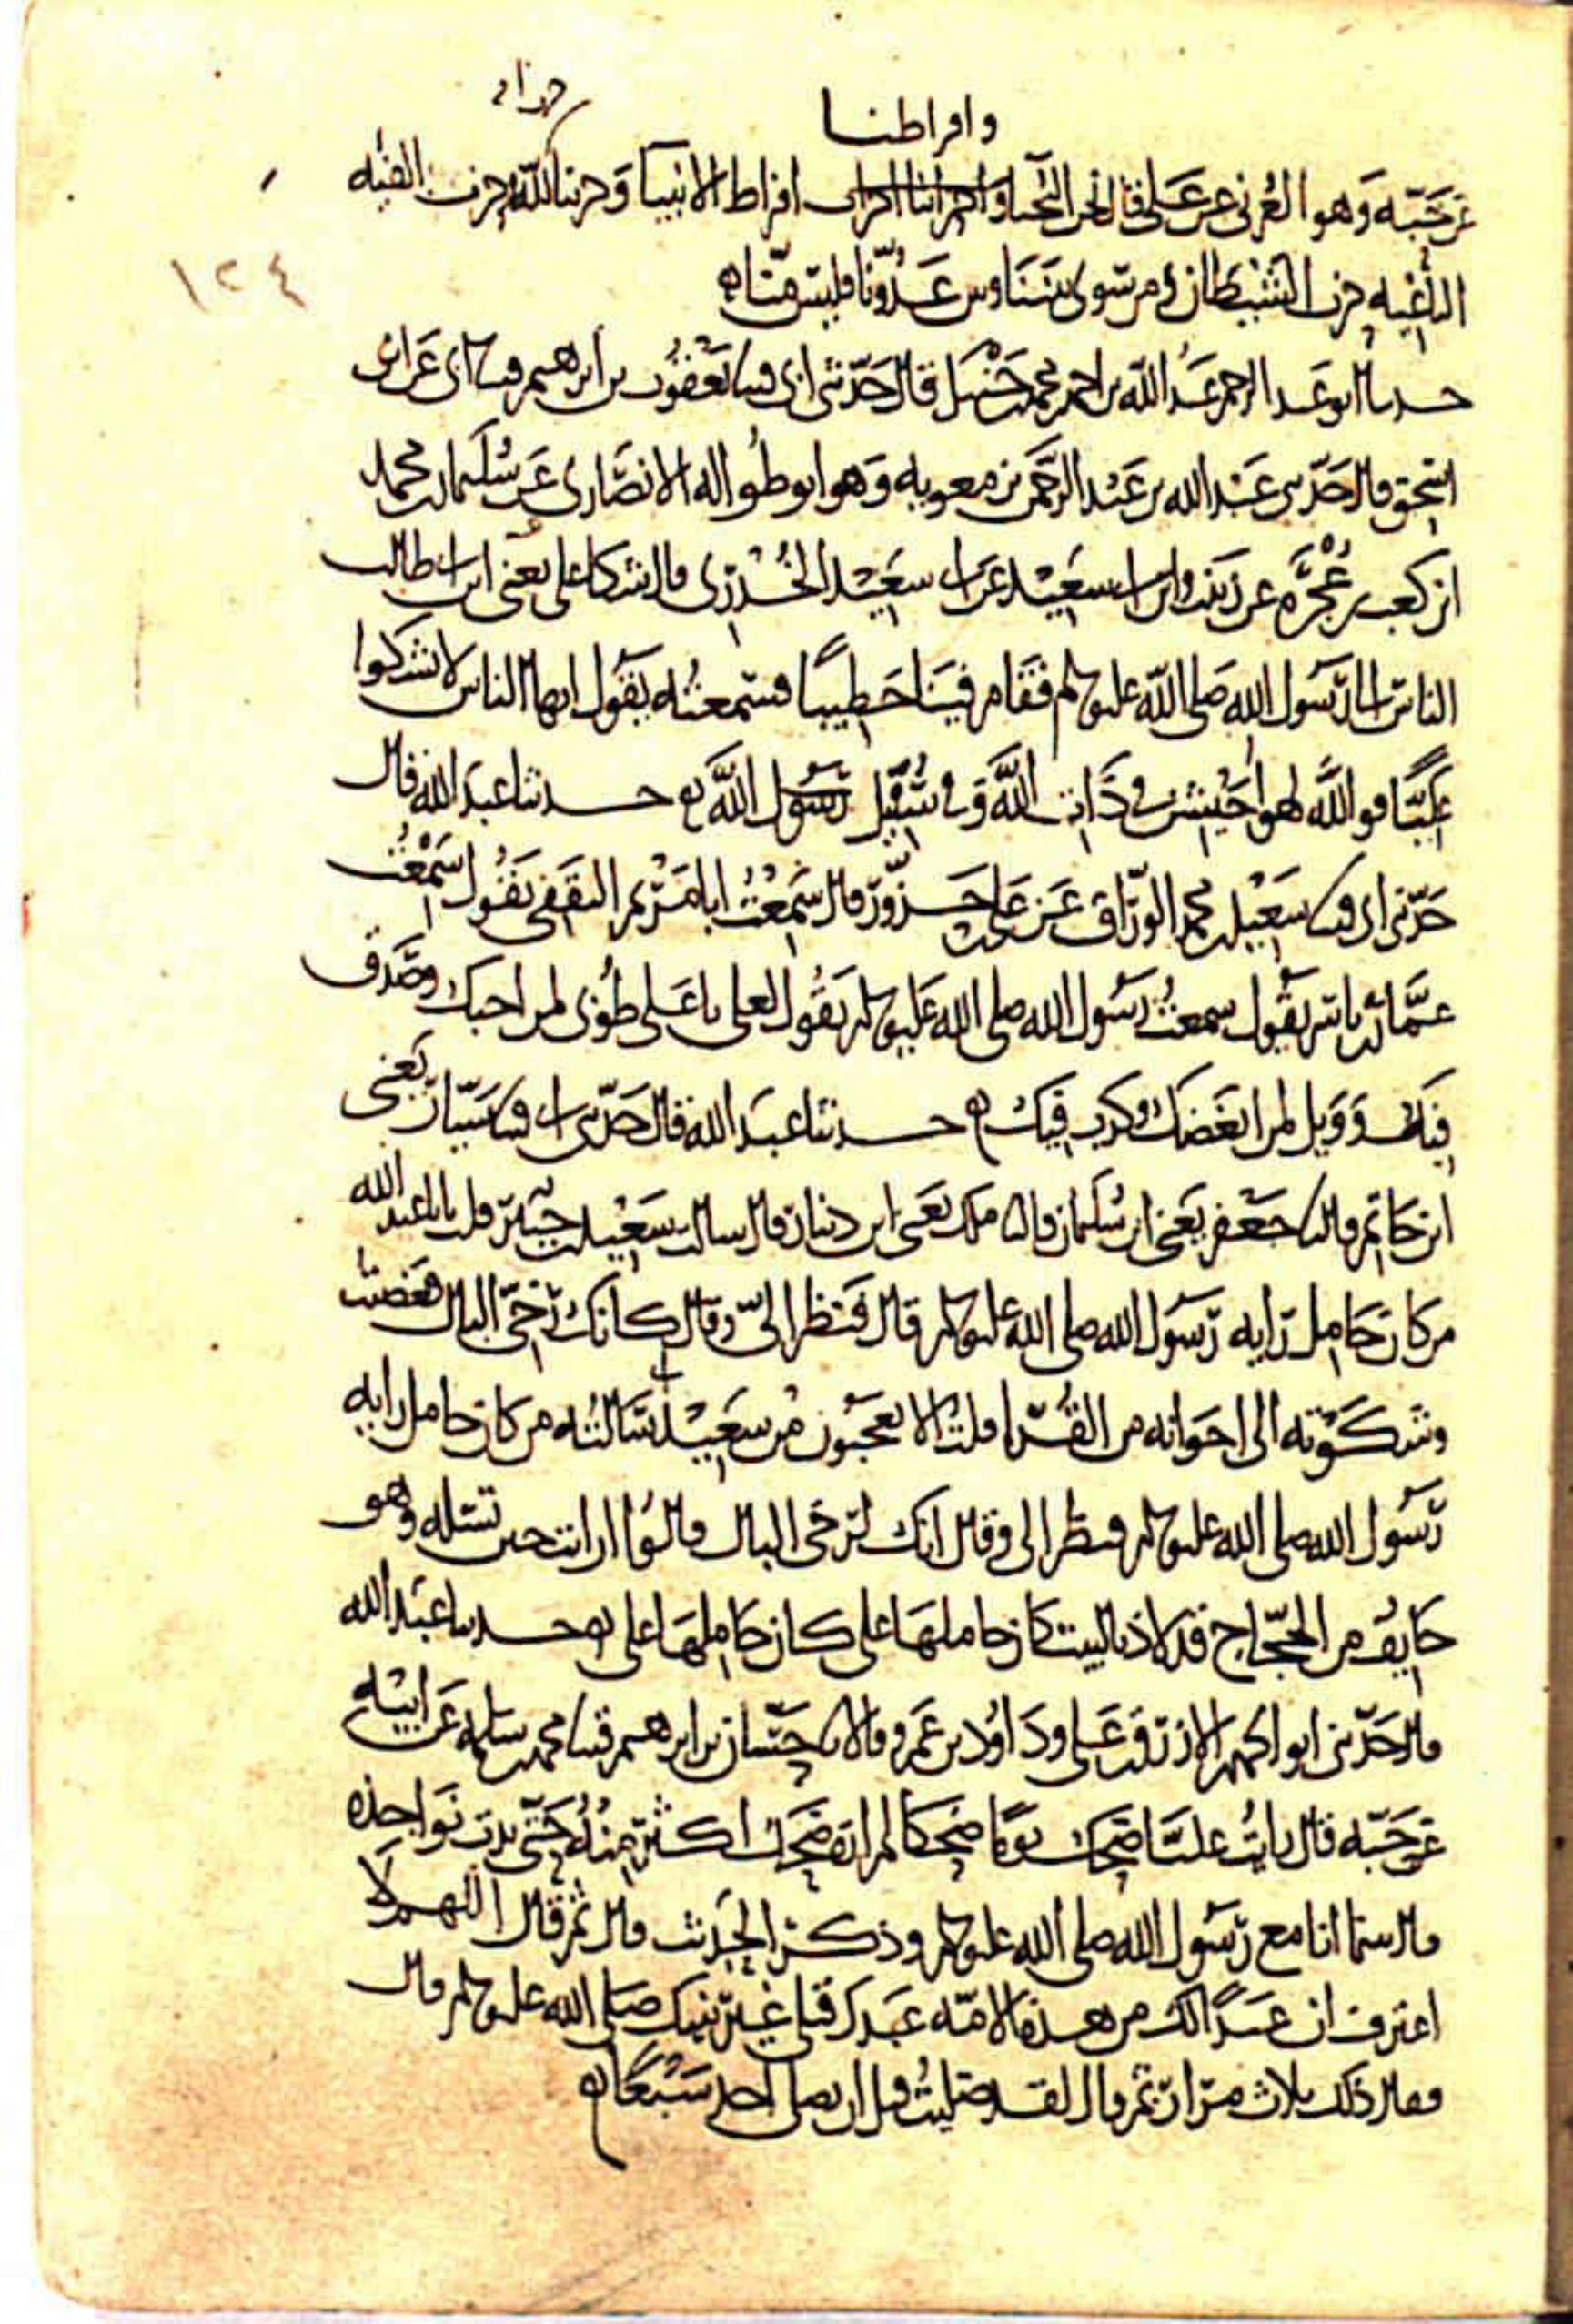 وافراطنا
عن حبه وهو العرني عن علي قال نحن النجبا وافراطنا افراط الانبيا وحزبنا حزب الله والفئه
الباغيه حزب الشيطان ومن سوى بيننا وبين عدونا فليس منا
١٢٤
حدثنا ابو عبد الرحمن عبد الله بن احمد بن محمد بن حنبل قال حدثني ابي قثنا يعقوب بن ابرهيم قثنا ابي عن ابن
اسحق قال حدثني عبد الله بن عبد الرحمن بن معويه وهو ابو طواله الانصاري عن سليمان بن محمد
ابن كعب بن عجره عن زينب وابن ابي سعيد عن ابي سعيد الخدري قال شكا علي يعني ابن ابي طالب
الناس الى رسول الله صلى الله عليه وسلم فقام فينا خطيبا فسمعته يقول ايها الناس لا تشكوا
عليا فو الله لهو اخيشن في ذات الله وفي سبيل رسول الله حدثنا عبد الله قال
حدثني ابي قثنا سعيد بن محمد الوراق عن علي بن حزور قال سمعت ابا مريم الثقفي يقول سمعت
عمار بن ياسر يقول سمعت رسول الله صلى الله عليه وسلم يقول لعلي يا علي طوبى لمن احبك وصدق
فيك وويل لمن ابغضك وكذب فيك حدثنا عبد الله قال حدثني ابي قثنا سيار يعني
ابن حاتم قال نا جعفر يعني ابن سليمان قال نا ملك يعني ابن دينار قال سالت سعيد بن جبير قلت يا با عبد الله
من كان حامل رايه رسول الله صلى الله عليه وسلم قال فنظر الي وقال كانك رخي البال فغضبت
وشكوته الى اخوانه من القرا قلت الا تعجبون من سعيد سالته من كان حامل رايه
رسول الله صلى الله عليه وسلم فنظر الي وقال انك لرخي البال قالوا ارايت حين تسئله وهو
خايف من الحجاج قد لاذ بالبيت كان حاملها علي كان حاملها علي حدثنا عبد الله
قال حدثني ابو الجهم الازرق بن علي وداود بن عمرو قالا نا حسان بن ابرهيم قثنا محمد بن سلمه عن ابيه
عن حبه قال رايت عليا ضحك يوما ضحكا لم اره ضحك اكثر منه حتى بدت نواجذه
قال بينما انا مع رسول الله صلى الله عليه وسلم وذكر الحديث قال ثم قال اللهم لا
اعترف ان عبدا لك من هذه الامه عبدك قبلي غير نبيك صلى الله عليه وسلم قال
فقال ذلك ثلاث مرار ثم قال لقد صليت قبل ان يصلي احد سبعا